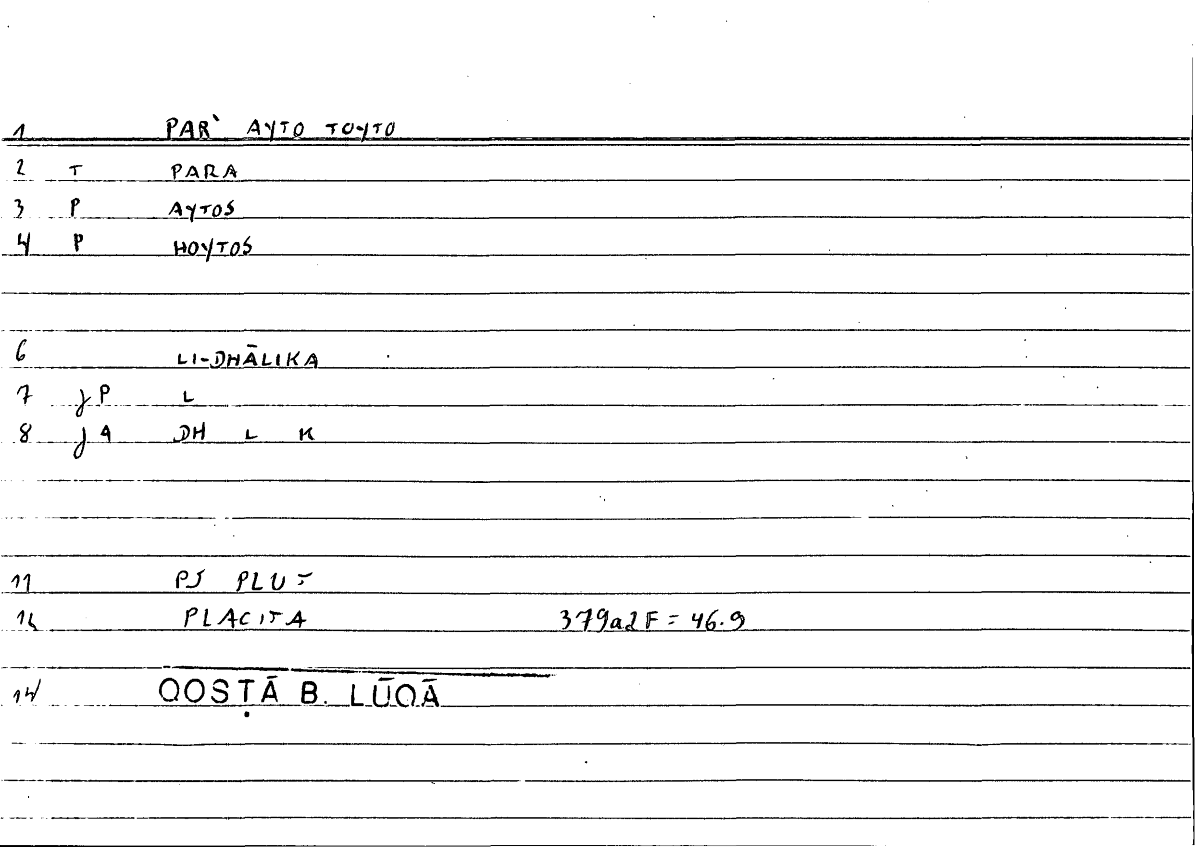 1 PAR` AYTO TOYTO
2 T PARA
3 P AYTOS
4 P HOYTOS
6 LI-DHĀLIKA
7 j P L
8 j A DH L K
11 PS PLUT
12 PLACITA 379a2F = 46.9
14 QOSṬĀ B. LŪQĀ